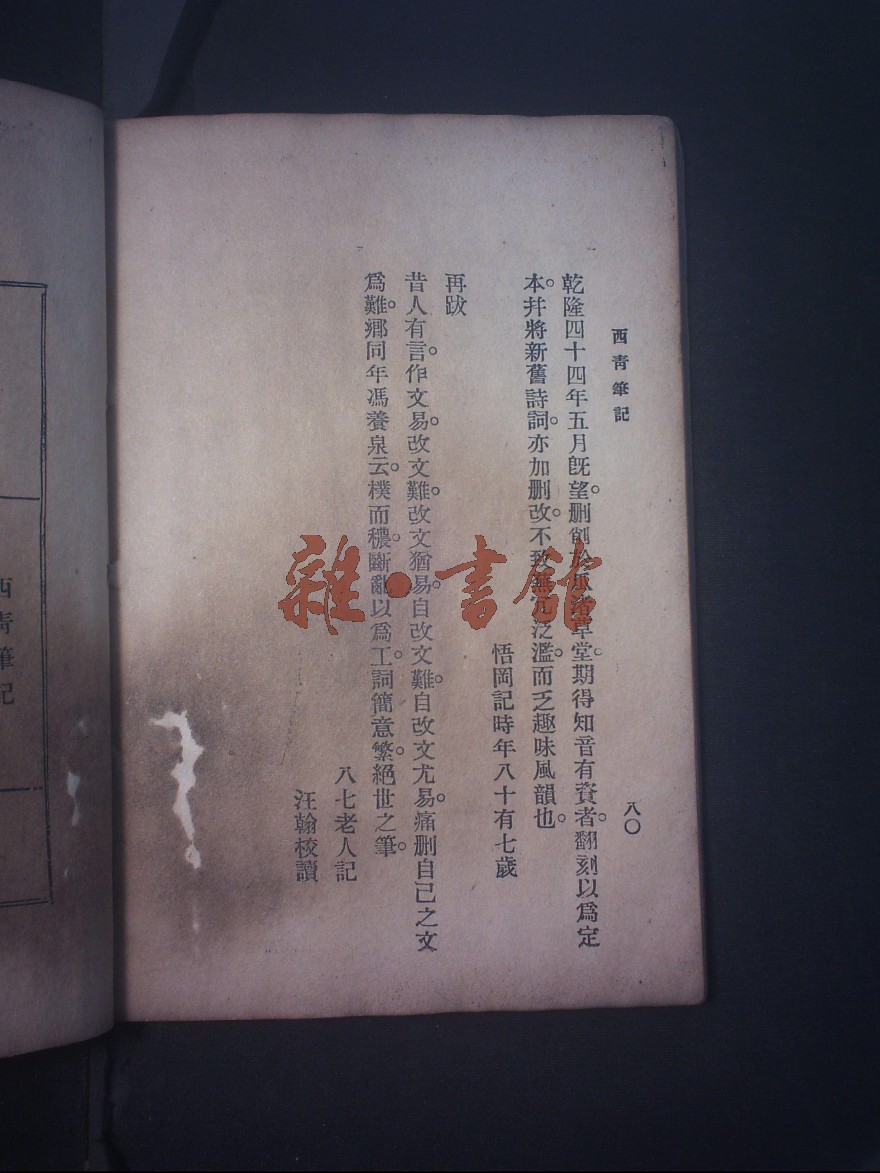 西青筆記
八〇
乾隆四十四年五月旣望。删創於瓜渚草堂。期得知音有資者。翻刻以爲定
本。幷將新舊詩詞。亦加删改。不致無冗泛濫。而乏趣味風韻也。
悟岡記時年八十有七歲
再跋
昔人有言。作文易。改文難。改文猶易。自改文難。自改文尤易。痛删自己之文
爲難。鄉同年馮養泉云。樸而穠。斷亂以爲工。詞簡意繁。絕世之筆。
八七老人記
汪翰校讀
西靑筆記
雜·書館